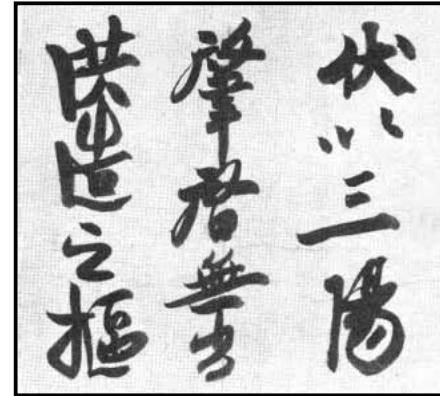 伏以三陽
肇啓無
洪造之樞